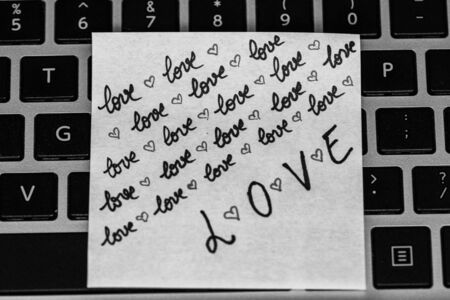 % 5 ^ 6 & 7 * 8 ( 9 ) 0
love ♡ love ♡
♡ love ♡ love ♡ love
love ♡ love ♡ love ♡ love ♡
love ♡ love ♡ love ♡ love ♡ love
love ♡ love ♡ love ♡ love ♡ love ♡
L ♡ O ♡ V ♡ E
T P
G : ;
V > . ? /